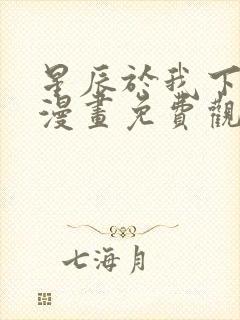 星辰於我下
漫畫免費觀
七海月